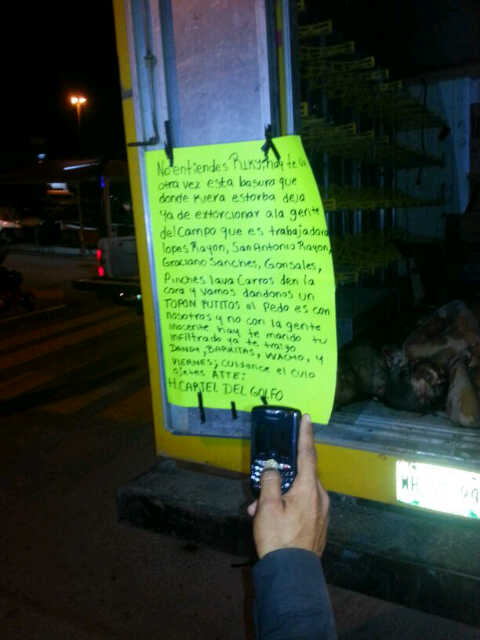 No entiendes RIKY, hay te va
otra vez esta basura que
donde kuera estorba deja
ya de extorcionar a la gente
del Campo que es trabajadora
lopes Rayon, San Antonio Rayon,
Graciano Sanches, Gonsales,
Pinches lava Carros den la
cara y vamos dandonos un
TOPON PUTITOS el Pedo es con
nosotros y no con la gente
inocente hay te mando tu
infiltrado ya te traigo
DANDY, BARRITAS, WACHO, y
VIERNES; cuidance el culo
ojetes ATTE:
H. CARTEL DEL GOLFO